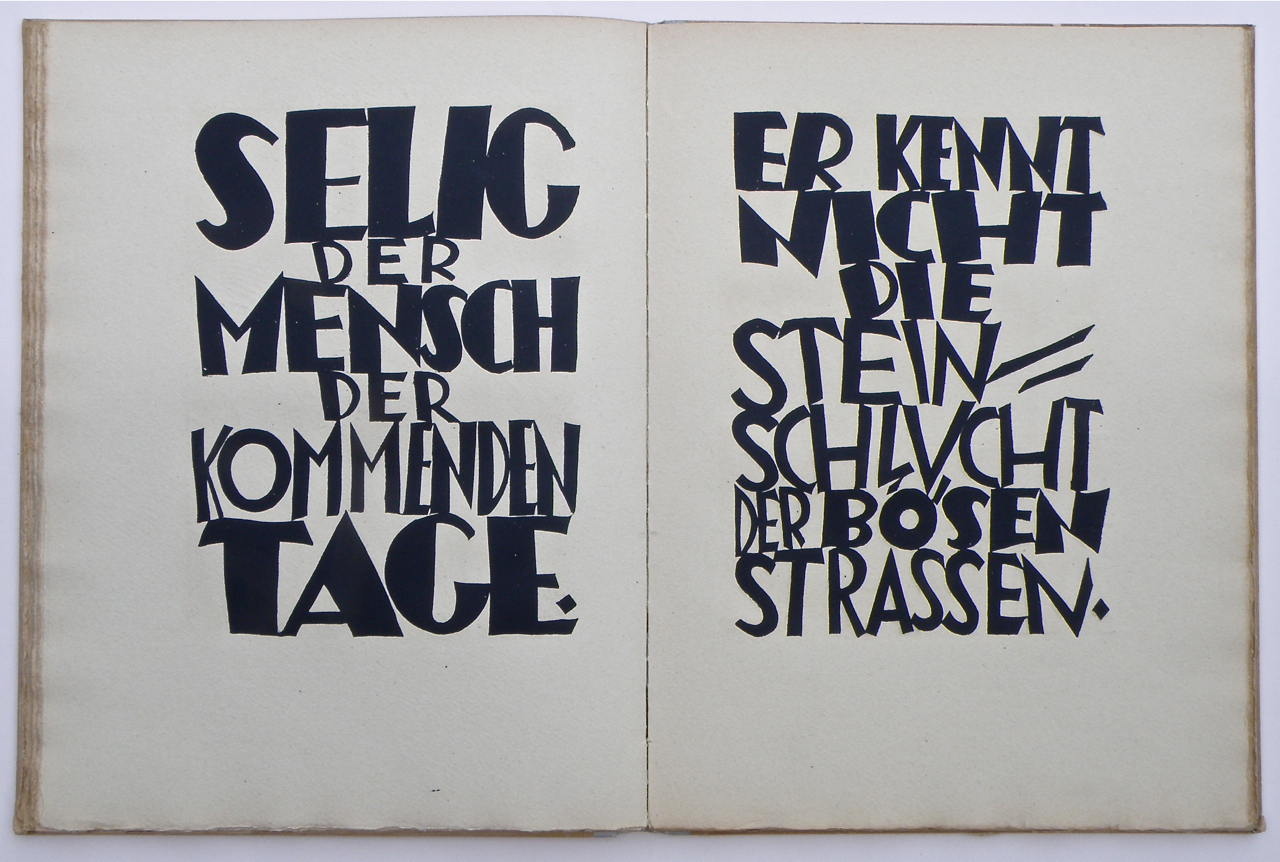 SELIG
DER
MENSCH
DER
KOMMENDEN
TAGE.
ER KENNT
NICHT
DIE
STEIN=
SCHLVCHT
DER BÖSEN
STRASSEN.